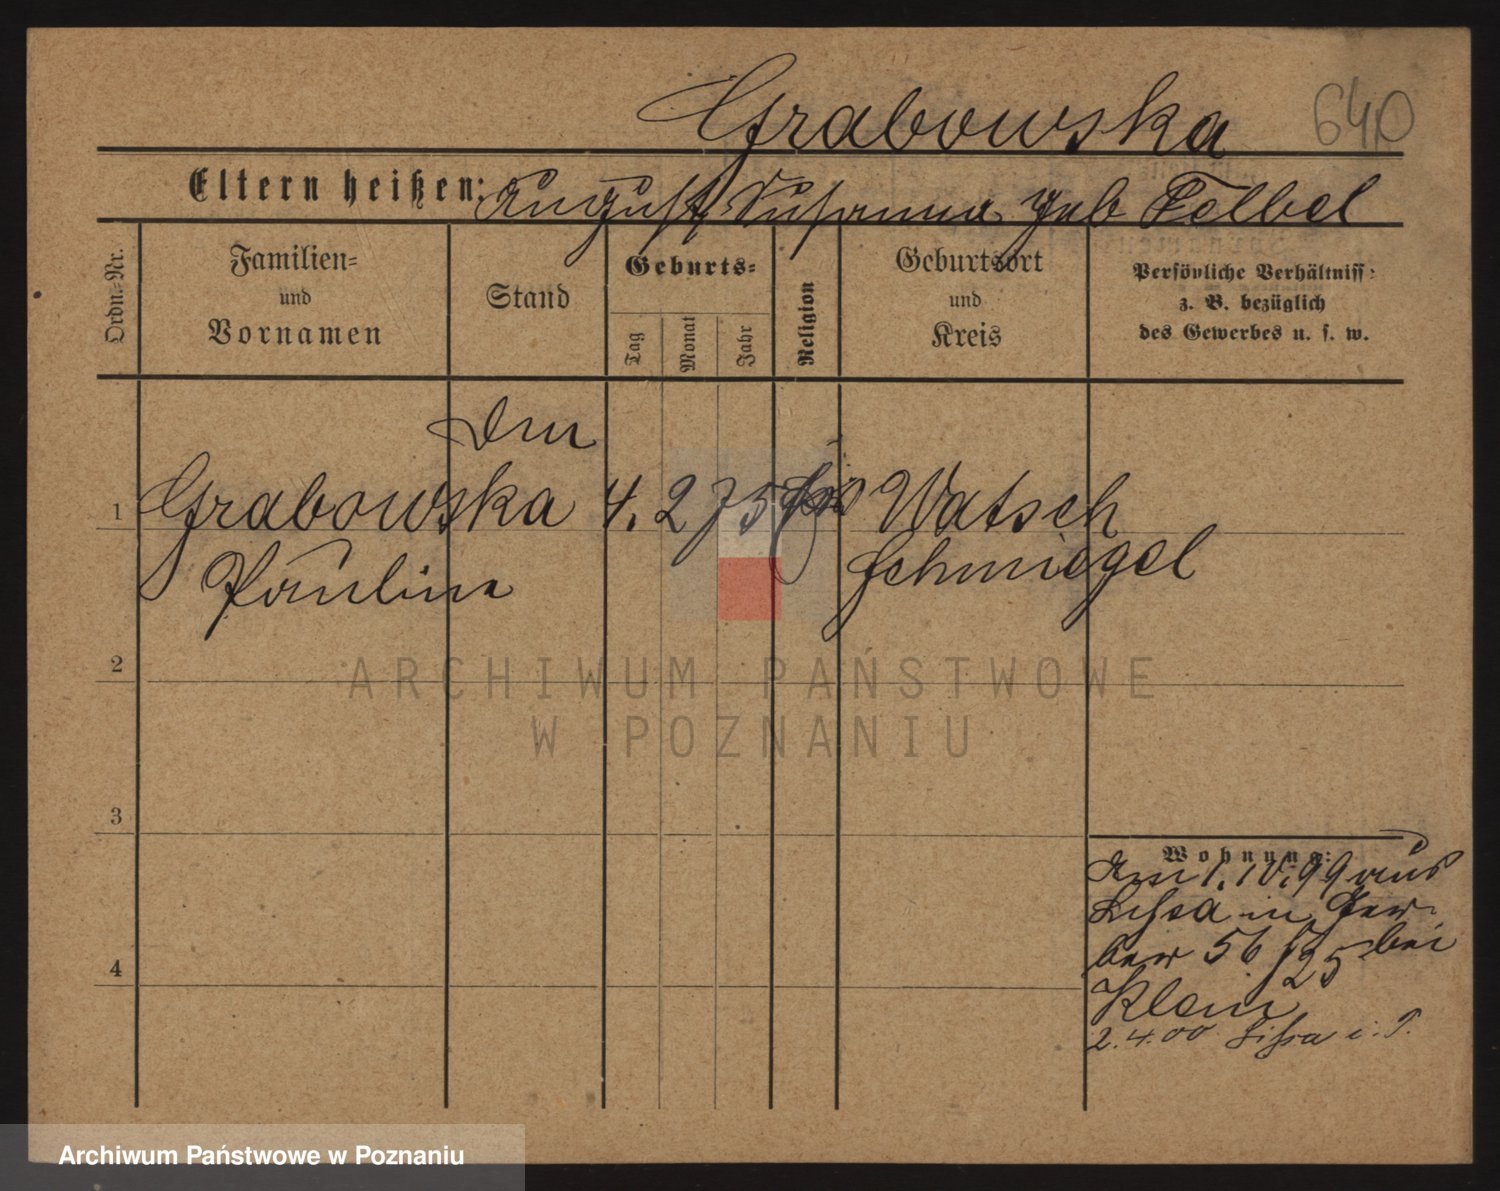 Grabowska 640
Eltern heißen: August, Susanna geb Felbel
Ordn.-Nr.
Familien-
und
Vornamen
Stand
Geburts-
Tag
Monat
Jahr
Religion
Geburtsort
und
Kreis
Persönliche Verhältniss:
z. B. bezüglich
des Gewerbes u. s. w.
1 Grabowska 4. 2 75 Watsch
Paulina Schmiegel
2
3
4
Wohnung:
Am 1. IV. 99 aus
Lissa in Ger-
ber 56 bei
Klein
2.4.00 Lissa i. P.
ARCHIWUM PAŃSTWOWE
W POZNANIU
Archiwum Państwowe w Poznaniu